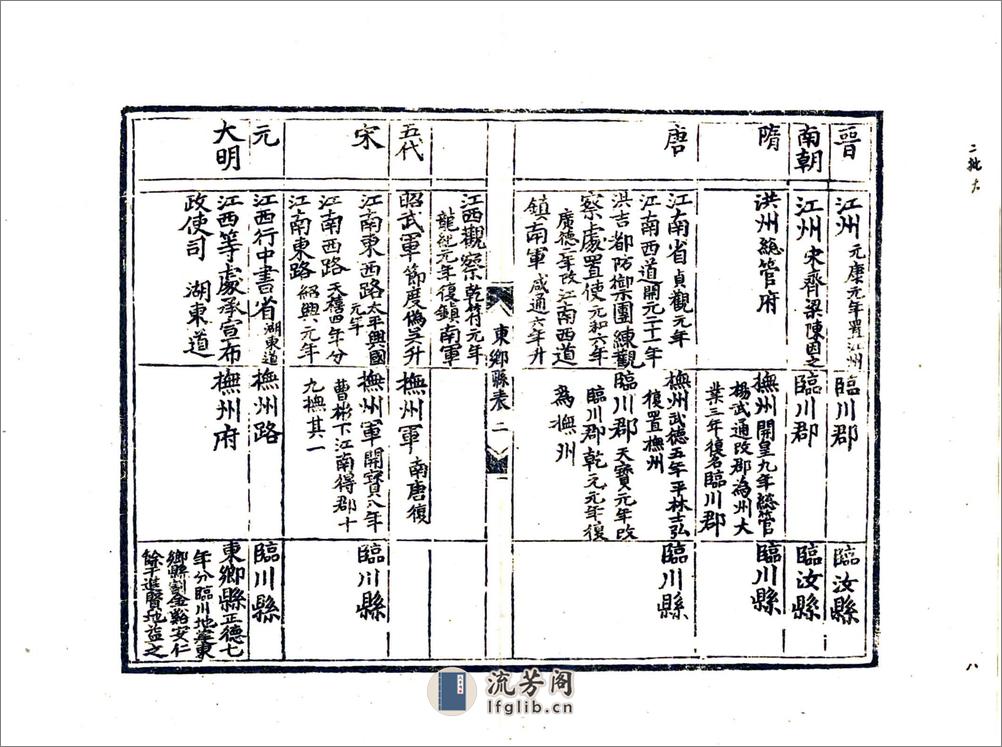 晉
江州 元康元年置江州
臨川郡
臨汝縣
南朝
江州 宋齊梁陳因之
臨川郡
臨汝縣
隋
洪州 總管府
撫州 開皇九年總管
楊武通改郡為州大
業三年復名臨川郡
臨川縣
唐
江南省 貞觀元年
江南西道 開元二十一年
洪吉都防禦團練觀
察處置使 元和六年
廣德二年改江南西道
鎮南軍 咸通六年升
撫州 武德五年平林士弘
復置撫州
臨川郡 天寶元年改
臨川郡乾元元年復
為撫州
臨川縣
東鄉縣表 二
江西觀察 乾符元年
龍紀元年復鎮南軍
五代
昭武軍 節度偽吳升
撫州軍 南唐復
宋
江南東西路 太平興國
元年
江南西路 天禧四年分
江南東路 紹興元年
撫州軍 開寶八年
曹彬下江南得郡十
九撫其一
臨川縣
元
江西行中書省 湖東道
撫州路
臨川縣
大明
江西等處承宣布
政使司 湖東道
撫州府
東鄉縣 正德七
年分臨川地葉東
鄉縣割金谿安仁
餘干進賢地益之
二批
八
流芳阁
lfglib.cn